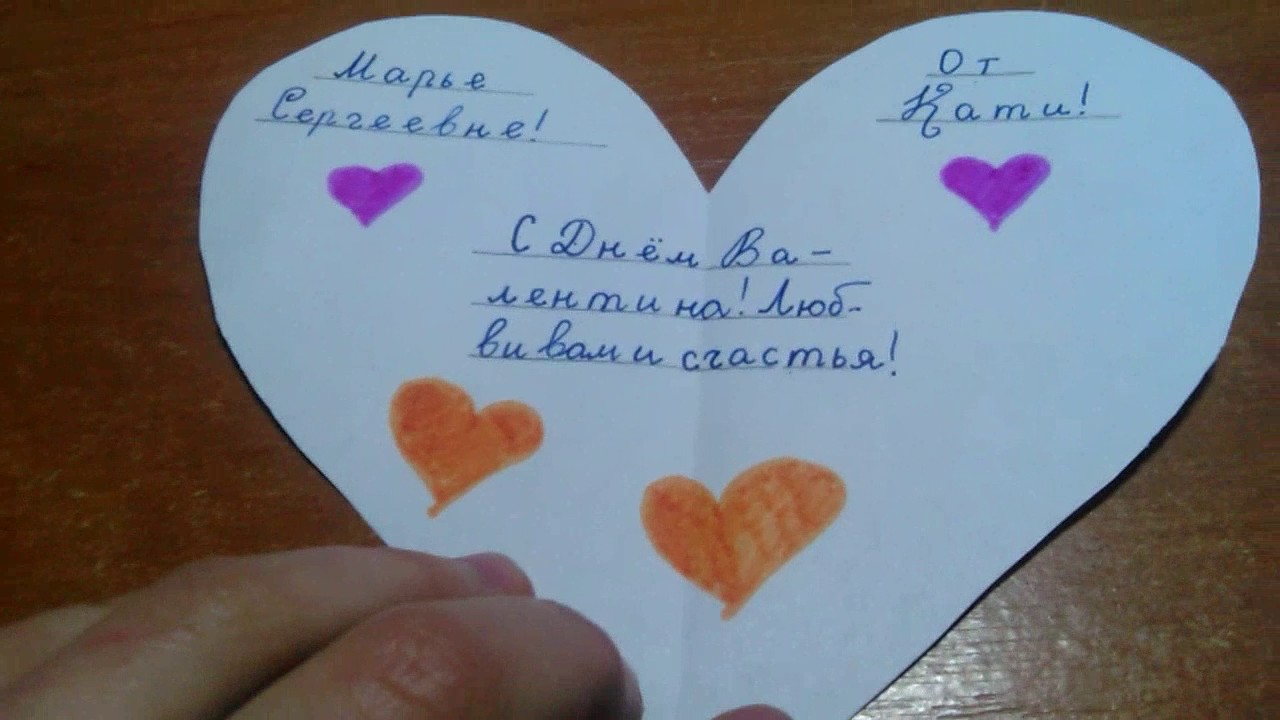 Марье
Сергеевне!
От
Кати!
С Днём Ва-
лентина! Люб-
ви вам и счастья!